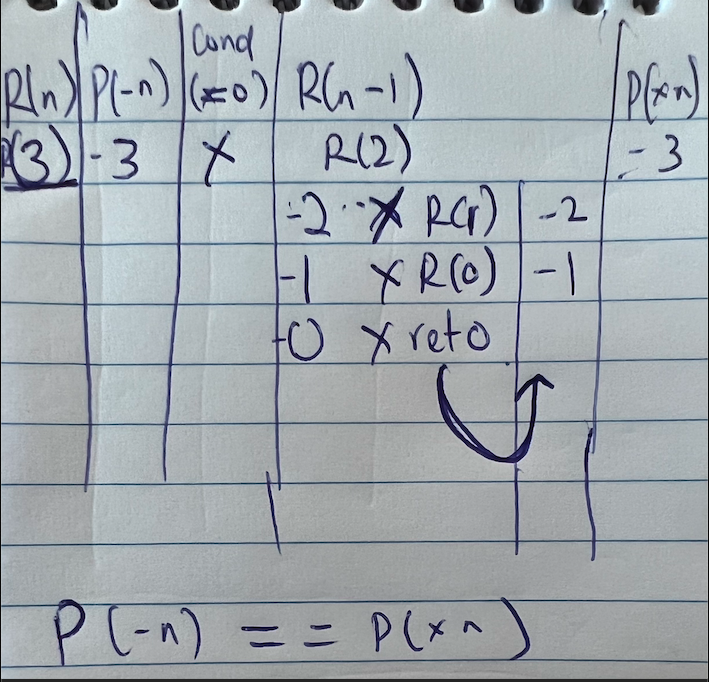 Cond
R(n) P(-n) (x=0) R(n-1) P(xn)
R(3) -3 X R(2) -3
-2 X R(1) -2
-1 X R(0) -1
-0 X ret 0
P(-n) == P(xn)